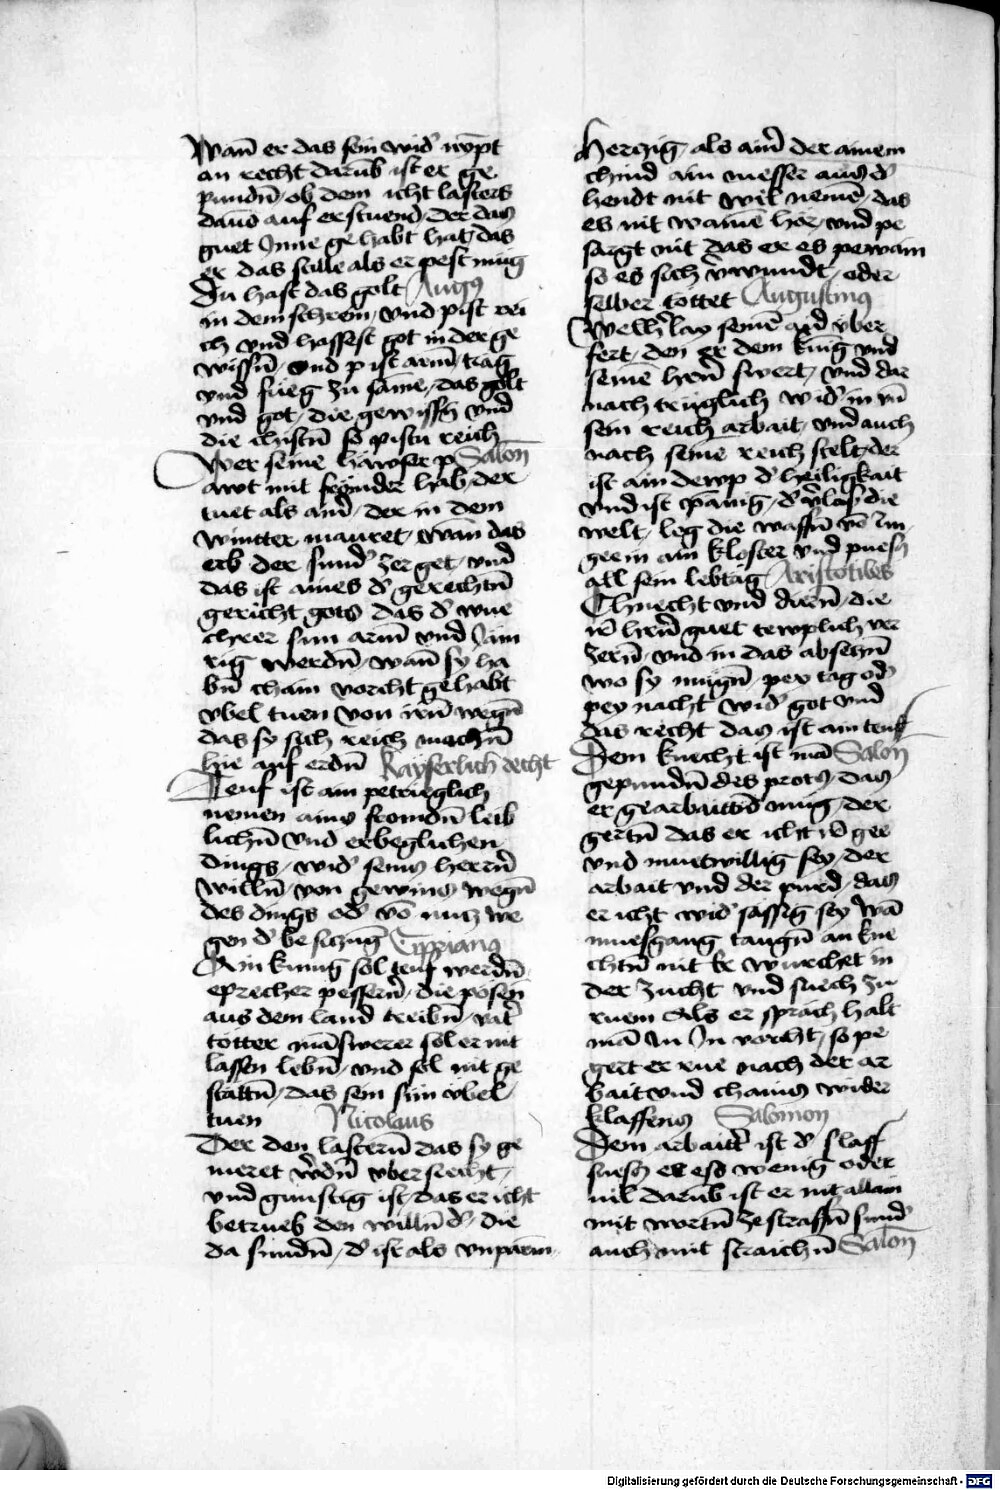 Wan̄ er das sein wid' rv̈pt
an recht darūb ist er ge
pundn̄ / ob dem icht lasters
dauō auf erstuend / Der das
guet Inne gehabt hat / das
er das stille als er pest mug
Du hast das golt Augꝰ
in dem schrein / vnd pist rei
ch vnd hassest got in der ge
wissn̄ / vnd pist arm̄ / trag
vnd füeg zu sāme / das golt
vnd got / die gewissn̄ vnd
die chistn̄ so pistu reich
Wer seine häwser p Salon̄
awt mit frömder hab / der
tuet als ain̄ / der in dem
wintter mauret / wan̄ das
erb der sund' zerget / vnd
das ist aines d' gerechtn̄
gericht gots das d' wue
chrer sun arm̄ vnd Jäm
rig werdn̄ / wan̄ sy ha
bn̄ chain vorcht gehabt
vbel tuen von irn̄ wegn̄
das sy sich reich machn̄
hie auf erdn̄ Kayserlich recht
Deuf ist ain petrieglich
nemen ains fromdn̄ leib
lichn̄ vnd erbeglichen
dings / wid' seins herrn̄
willn̄ / von gewins wegn̄
des dings od' vō nutz we
gen d' besiczūg Cyprianꝰ
Ain kunig sol teuf werdn̄
eprecher pessern̄ / die posen
aus dem land treibn̄ / vat'
totter māswerer sol er nit
lassen lebn̄ / vnd sol nit ge
stattn̄ / das sein sun vbel
tuen Nicolaus
Der den lastern̄ das sy ge
meret w'dn̄ vbersiecht /
vnd gunstig ist / das er icht
betrueb den willn̄ d' / die
da sundn̄ / d' ist als vnparm
herczig / als ain̄ der ainem
chind ain messer aus d'
hendt nit wil nemē / das
es nit wainē hör / vnd pe
sargt nit das er es pewain
so es sich v'wundt / oder
selber tottet Augustinus
Welh' lay seinē aid vber
fert / den er dem kunig vnd
seinē hern̄ swert / vnd dar
nach trüglich wid' in vn̄
sein reich arbait / vnd auch
nach seinē reich stelt / der
ist ain dewp d' heiligkait
vnd ist pänig / d' v'lass die
welt / leg die waffn̄ vō im /
gee in ain kloster vnd puess
all sein lebtag Aristotiles
Chnecht vnd dirn̄ / die
irē hern̄ guet tewplich ver
zern̄ / vnd in das absteln̄
wo sy mugn̄ / pey tag od'
pey nacht wid' got vnd
das recht das ist ain teuf
Dem knecht ist mā Salon
gepundn̄ des protꝰ / das
er gearbaittn̄ mug / der
gertn̄ das er icht trē gee
vnd muetwillig sey / der
arbait vnd der purd / das
er icht wid' sässig sey Wā
muessgang taugn̄ an kne
chtn̄ nit Er wurchet in
der zucht vnd suech zu
ruem Als er sprach halt
mā in In vorcht / so pe
gert er rue nach der ar
bait vnd chains wider
klaffens Salomon
Dem arbaitt' ist d' slaff
suess er ess wenig oder
vil darūb ist er nit allain
mit wortn̄ ze straffn̄ sund'
auch mit straichn̄ Salon̄
Digitalisierung gefördert durch die Deutsche Forschungsgemeinschaft - DFG